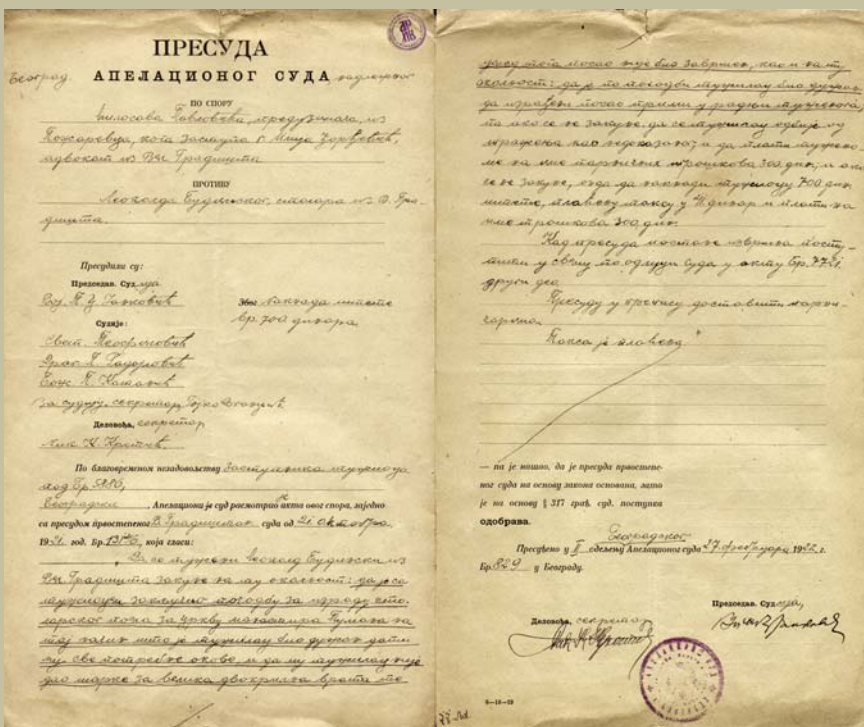 ПРЕСУДА
Београд. АПЕЛАЦИОНОГ СУДА
ПО СПОРУ
Милосава Павловића, предузимача, из
Пожаревца, кога заступа г. Мија Ђорђевић,
адвокат из Вел. Градишта
ПРОТИВУ
Леополда Будимског столара из В. Гра-
дишта.
Пресудили су:
Председав. Судија
Због накнада штете
вр. 700 динара.
Судије:
за судију, секретар
Деловођа, секретар
По благовременом незадовољству заступника тужиоца
код Бр. 5886,
Београдски, Апелациони је суд расмотрио акта овог спора, заједно
са пресудом првостепеног В. Градиштан. суда од 21 октобра
1921. год. Бр. која гласи:
Да се тужени Леополд Будимски из
Вел. Градишта закуне на ову околност: да је са
тужиоцем закључио погодбу за израду сто-
ларског посла за цркву манастира Тумана на
тај начин што је тужилац био дужан дати
му све потребно оково, и да му тужилац није
дао шарке за велика двокрилна врата те
услед тога посао није био завршен, као и на ту
околност: да је по погодби тужилац био дужан
да израђени посао прими у радњи туженога,
па ако се он закуне, да се тужилац одбије од
тражења као недоказано; и да плати туженo-
ме на име парничних трошкова 300 дин., и ако
се не закуне, онда да накнади тужиоцу 700 дин.
штете, плаћену таксу у динар и плати на
име трошкова 300 дин.
Кад пресуда постане извршна посту-
пити у свему по одлуци суда у акту Бр.
други део
Пресуду у препису доставити парни-
чарима.
Такса је плаћена."
— па је нашао, да је пресуда првостепе-
ног суда на основу закона основана, зато
је на основу § 317 грађ. суд. поступка
одобрава.
Београдског
Пресуђено у II одељењу Апелационог суда 27. фебруара 1922 г.
Бр. 829 у Београду.
Деловођа, секретар
Председав. Судија,